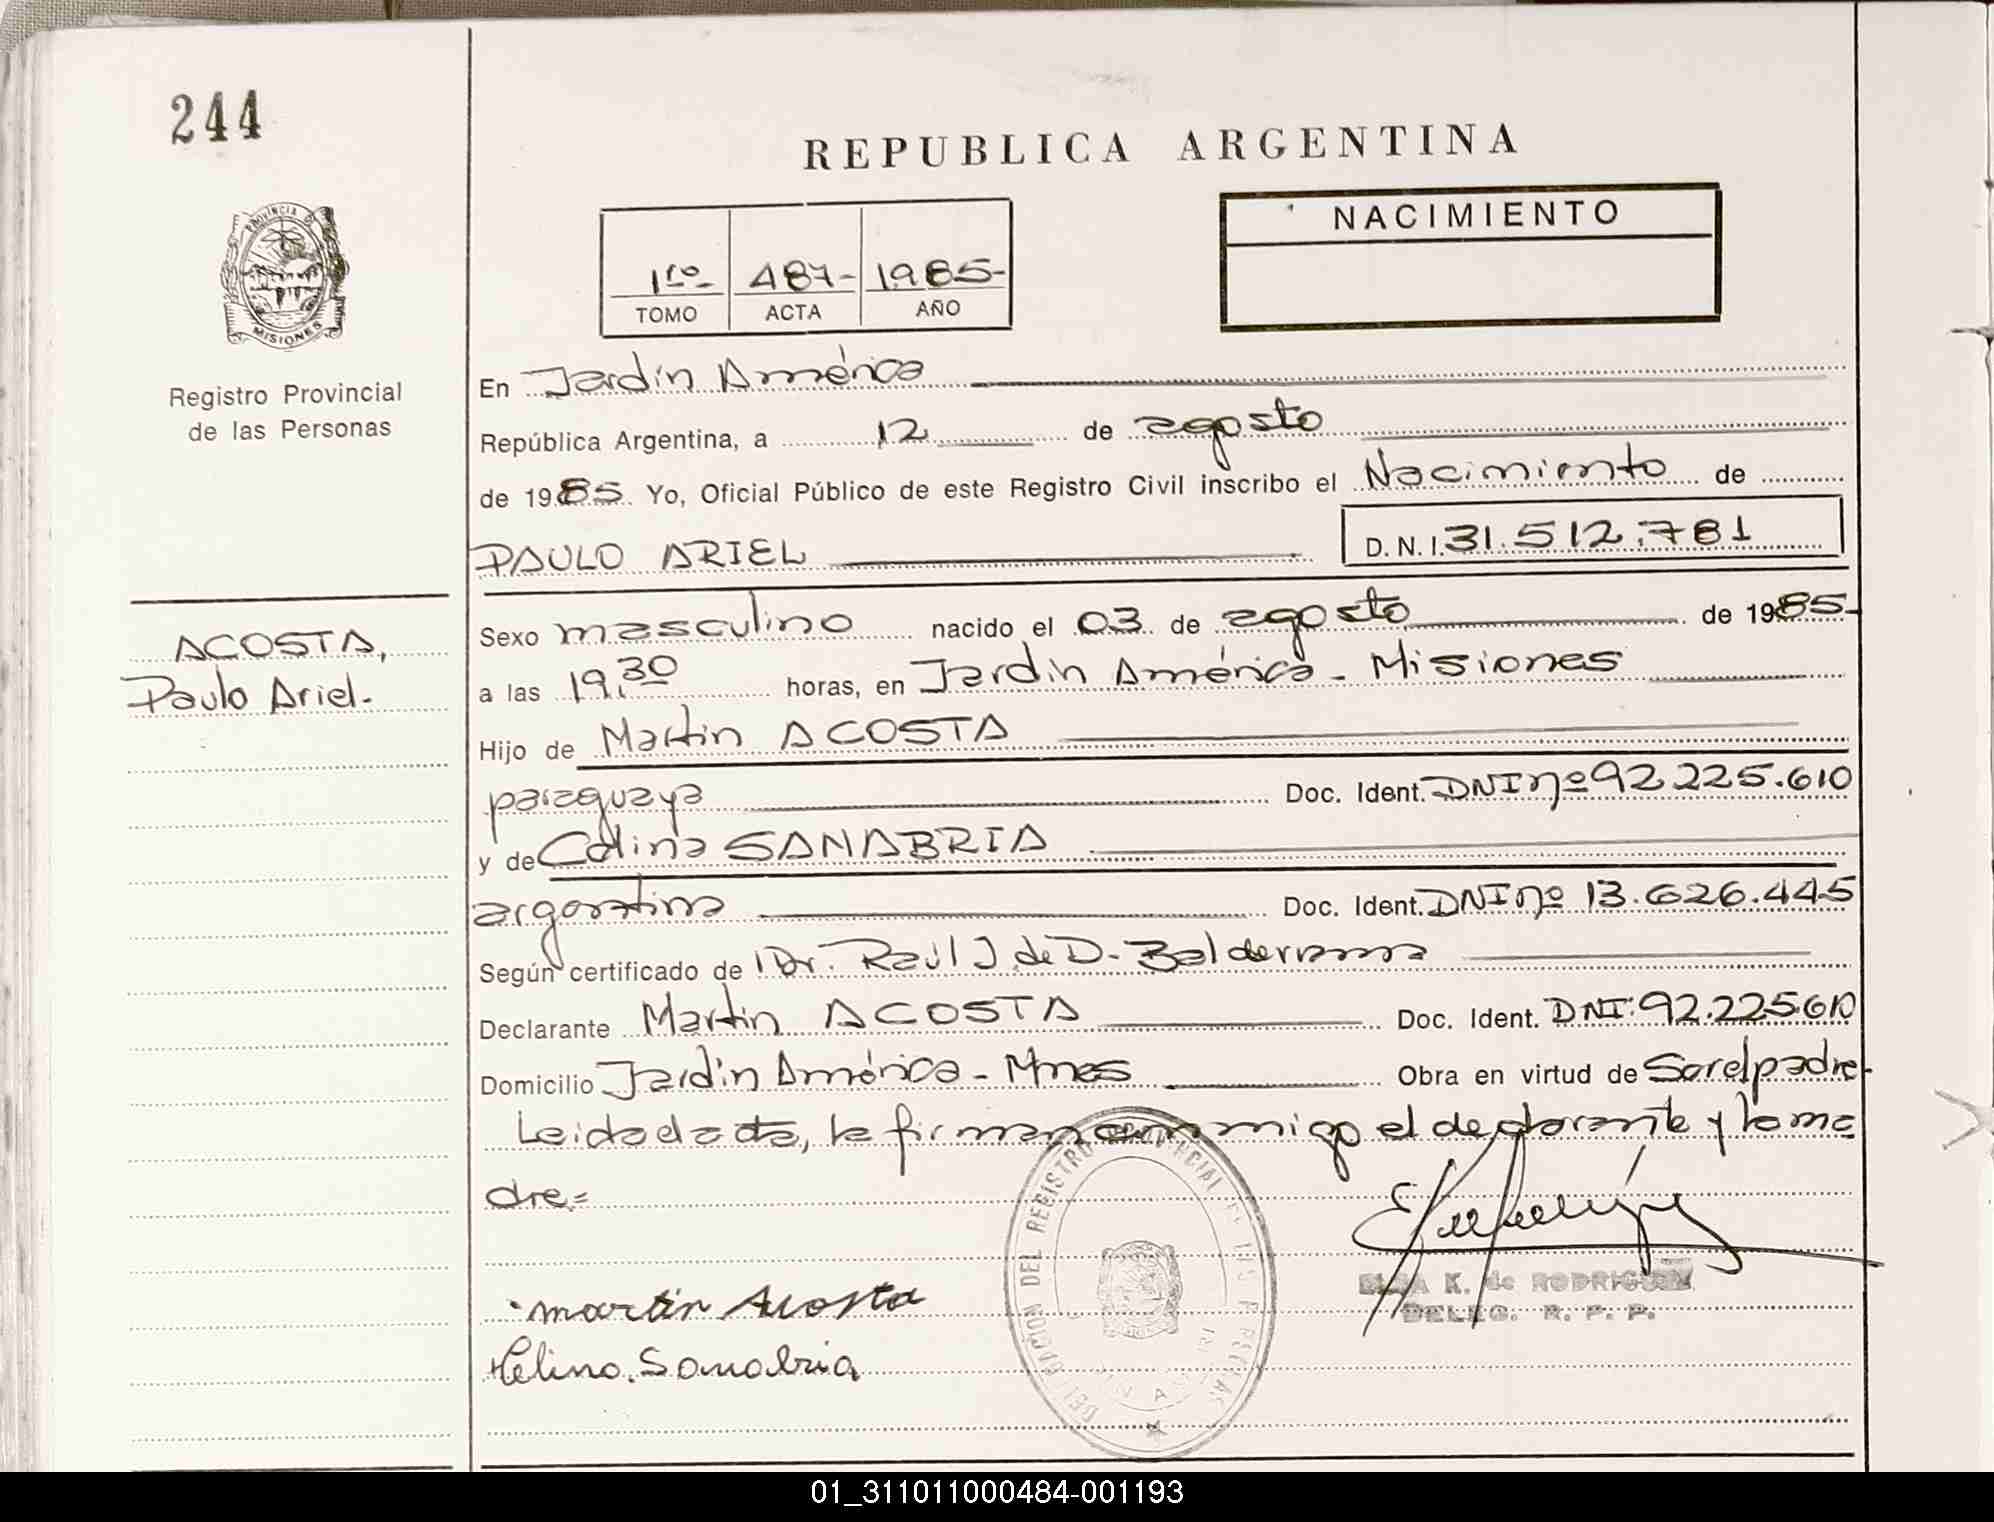 244
REPUBLICA ARGENTINA
NACIMIENTO
1ro- 487- 1985-
TOMO ACTA AÑO
PROVINCIA D MISIONES
Registro Provincial
de las Personas
En Jardín América
República Argentina, a 12 de agosto
de 1985. Yo, Oficial Público de este Registro Civil inscribo el Nacimiento de
PAULO ARIEL D.N.I. 31.512.781
ACOSTA,
Paulo Ariel.-
Sexo masculino nacido el 03 de agosto de 1985-
a las 19,30 horas, en Jardín América - Misiones
Hijo de Martin ACOSTA
paraguaya Doc. Ident. DNI nº 92 225.610
y de Celina SANABRIA
argentina Doc. Ident. DNI nº 13.626.445
Según certificado de Dr. Raúl J. de D. Balderrama
Declarante Martin ACOSTA Doc. Ident. DNI: 92.225610
Domicilio Jardín América - Mnes Obra en virtud de Ser el padre-
Leida el acta, la firman conmigo el declarante y la ma
dre.=
martin Acosta
Celina. Sanabria
ELSA K. de RODRIGUEZ
DELEG. R. P. P.
01_311011000484-001193